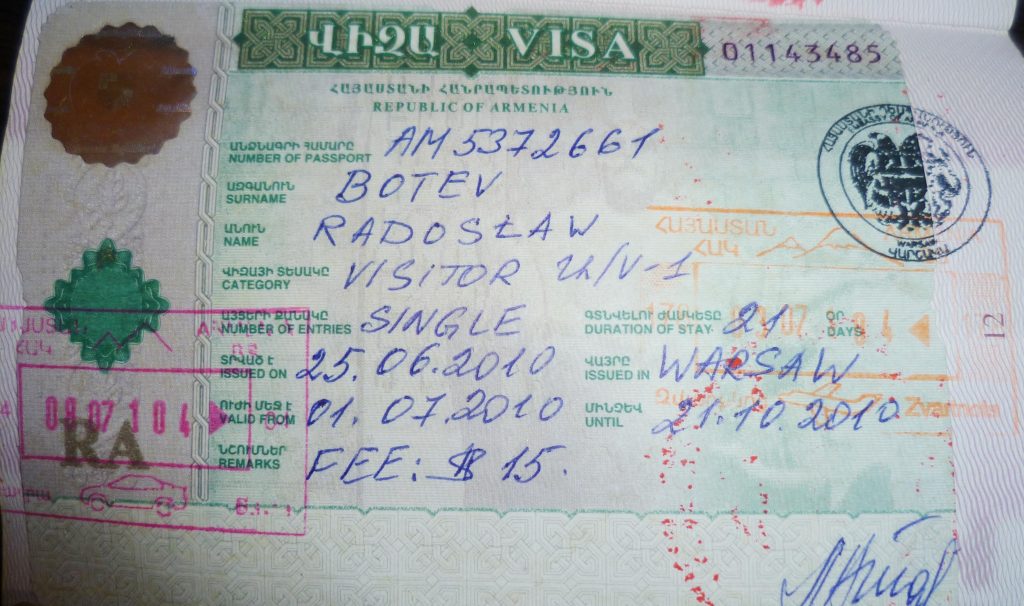 ՎԻԶԱ VISA 01143485
ՀԱՅԱՍՏԱՆԻ ՀԱՆՐԱՊԵՏՈՒԹՅՈՒՆ
REPUBLIC OF ARMENIA
ԱՆՁՆԱԳՐԻ ՀԱՄԱՐԸ
NUMBER OF PASSPORT AM5372661
ԱԶԳԱՆՈՒՆ
SURNAME BOTEV
ԱՆՈՒՆ
NAME RADOSŁAW
ՎԻԶԱՅԻ ՏԵՍԱԿԸ
CATEGORY VISITOR Ա/V-1
ԱՅՑԵՐԻ ՔԱՆԱԿԸ
NUMBER OF ENTRIES SINGLE
ԳՏՆՎԵԼՈՒ ԺԱՄԿԵՏԸ
DURATION OF STAY 21
ՕՐ
DAYS
ՏՐՎԱԾ Է
ISSUED ON 25.06.2010
ՎԱՅՐԸ
ISSUED IN WARSAW
ՈՒԺԻ ՄԵՋ Է
VALID FROM 01.07.2010
ՄԻՆՉԵՎ
UNTIL 21.10.2010
ՆՇՈՒՄՆԵՐ
REMARKS FEE: $ 15.
RA
ՀԱՅԱՍՏԱՆ
ՀԱԿ
WARSAW
12